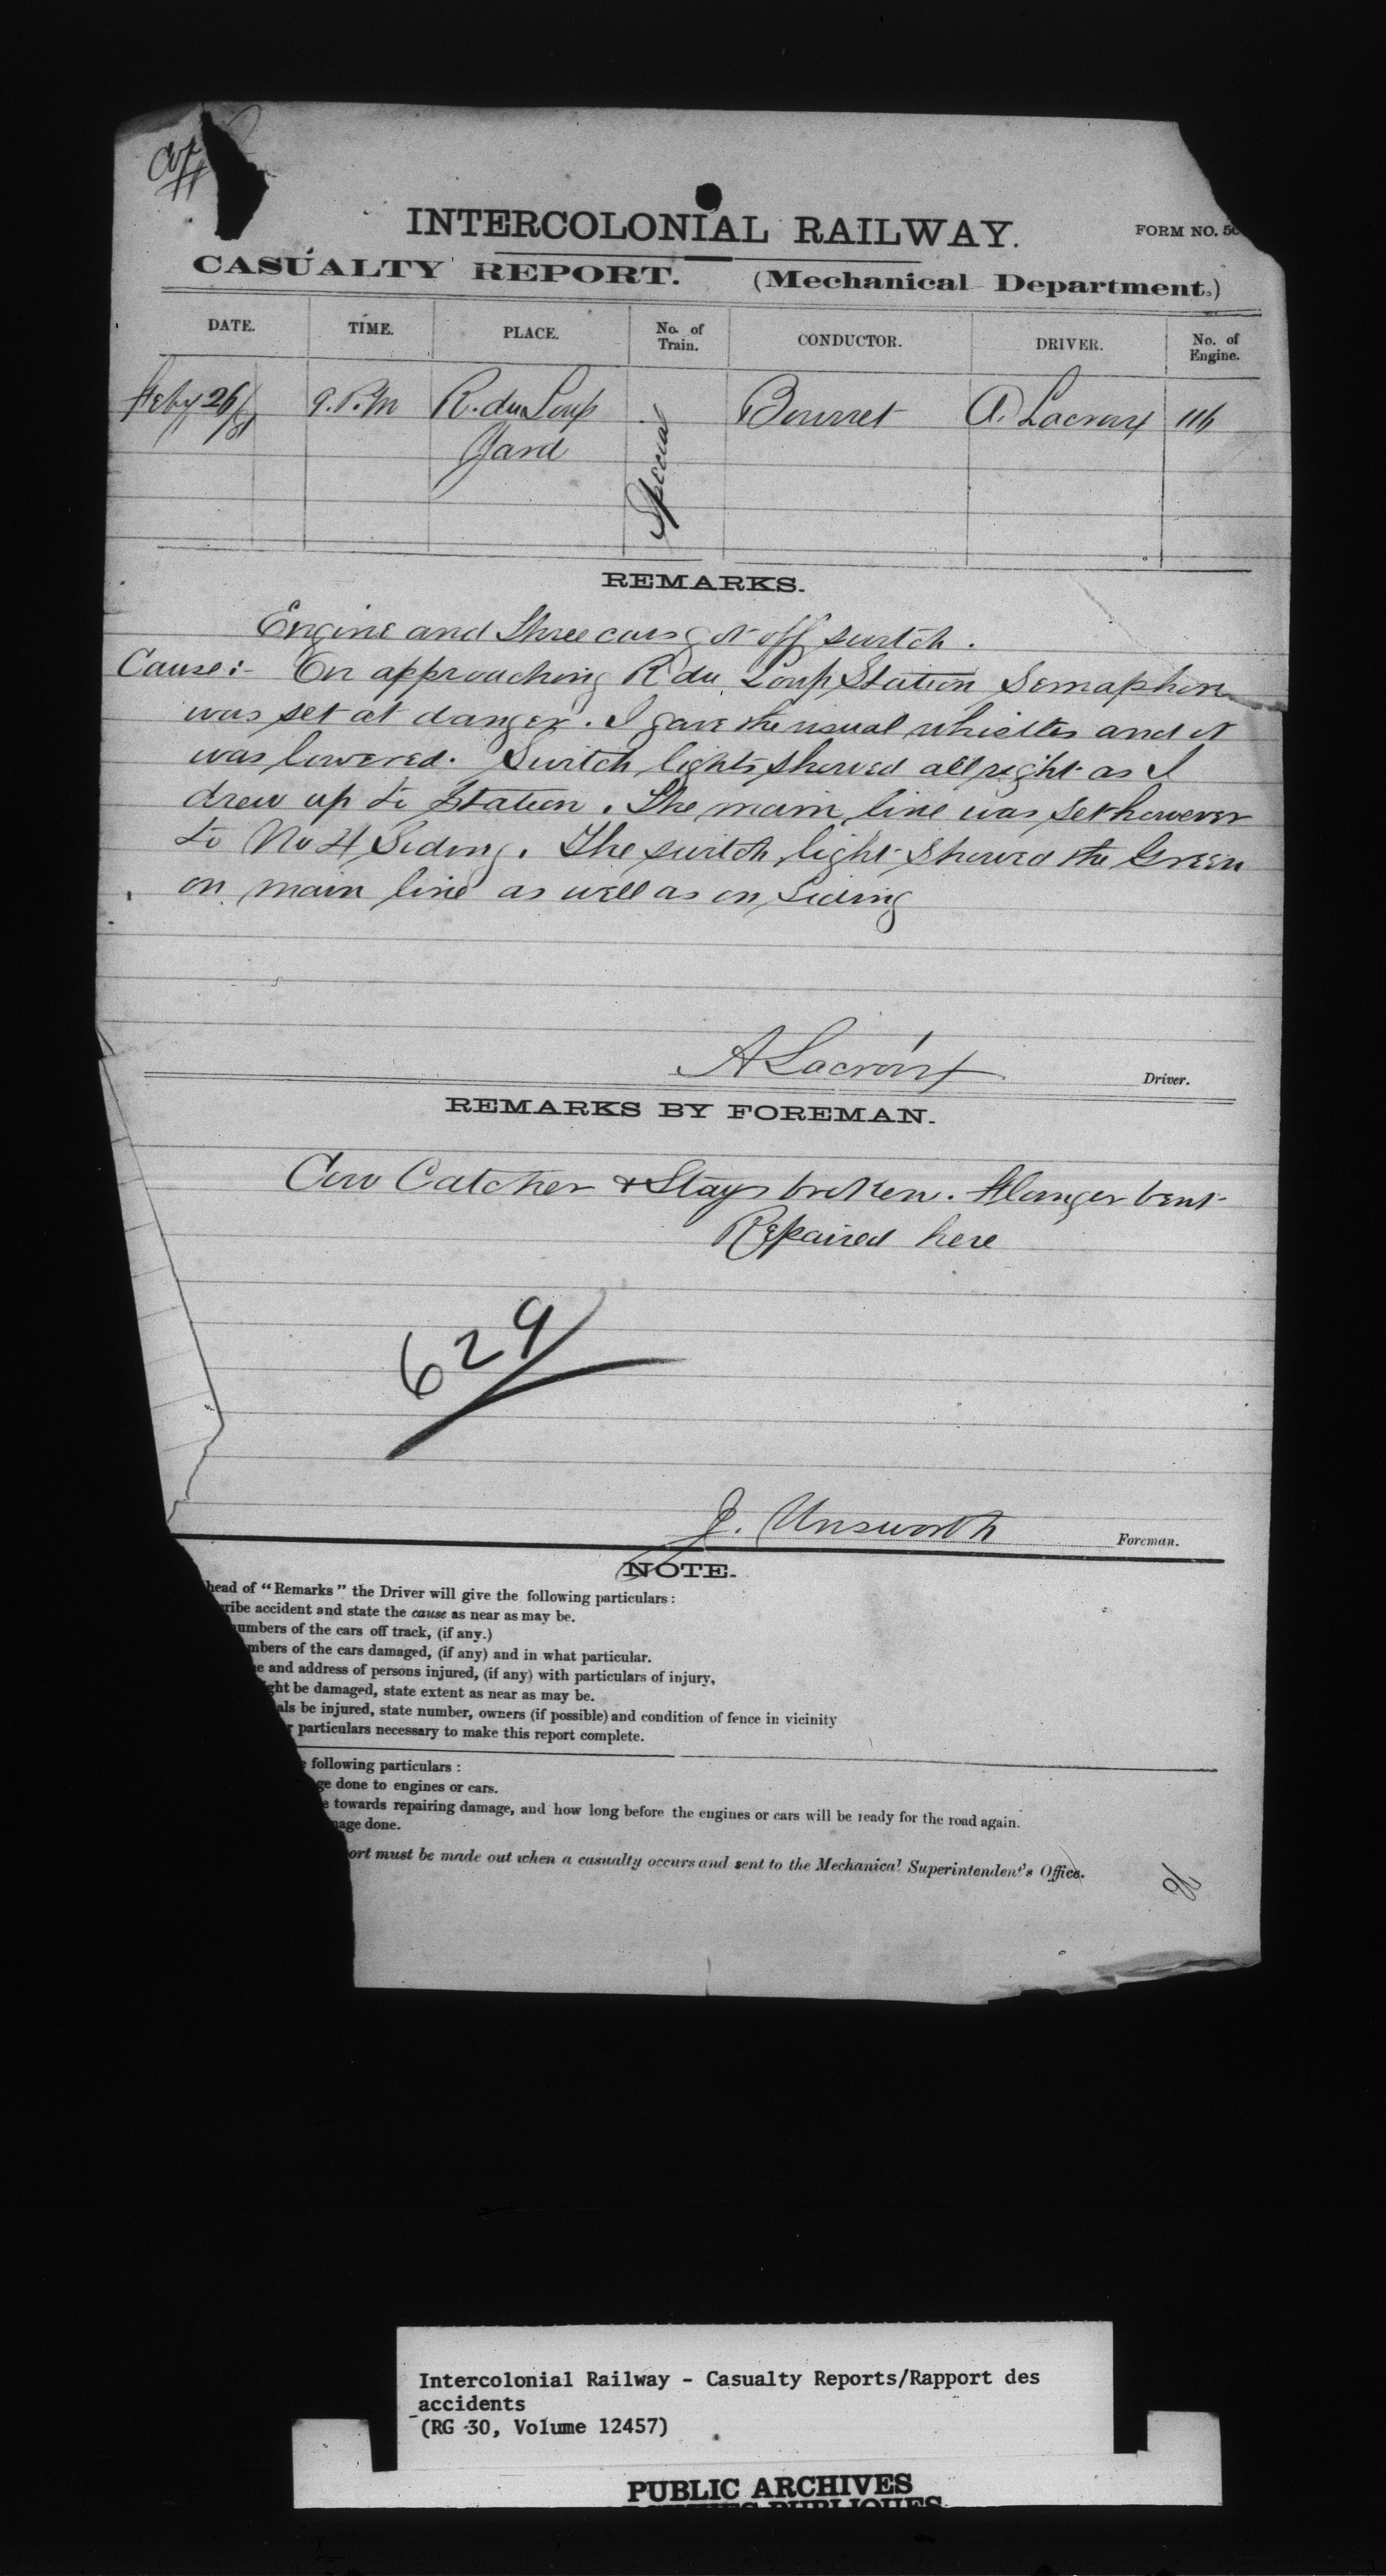 Copy
INTERCOLONIAL RAILWAY.
FORM NO. 5
CASUALTY REPORT. (Mechanical Department.)
DATE. TIME. PLACE. No. of Train. CONDUCTOR. DRIVER. No. of Engine.
Feby 26/81 9.P.M R. du Loup Special Bourret A. Lacroix 116
Yard
REMARKS.
Engine and three cars got off switch.
Cause:- On approaching R du Loup Station Semaphore
was set at danger. I gave the usual whistles and it
was lowered. Switch lights showed all right as I
drew up to station. The main line was set however
to No 4 Siding. The switch light showed the Green
on main line as well as on siding
A Lacroix Driver.
REMARKS BY FOREMAN.
Cow Catcher & Stays broken. Flanger bent
Repaired here
629
J. Unsworth Foreman.
NOTE.
head of "Remarks" the Driver will give the following particulars:
ribe accident and state the cause as near as may be.
umbers of the cars off track, (if any.)
mbers of the cars damaged, (if any) and in what particular.
e and address of persons injured, (if any) with particulars of injury,
ght be damaged, state extent as near as may be.
als be injured, state number, owners (if possible) and condition of fence in vicinity
r particulars necessary to make this report complete.
e following particulars:
ge done to engines or cars.
e towards repairing damage, and how long before the engines or cars will be ready for the road again.
mage done.
ort must be made out when a casualty occurs and sent to the Mechanical Superintendent's Office.
Intercolonial Railway - Casualty Reports/Rapport des
accidents
(RG 30, Volume 12457)
PUBLIC ARCHIVES
PUBLIQUES